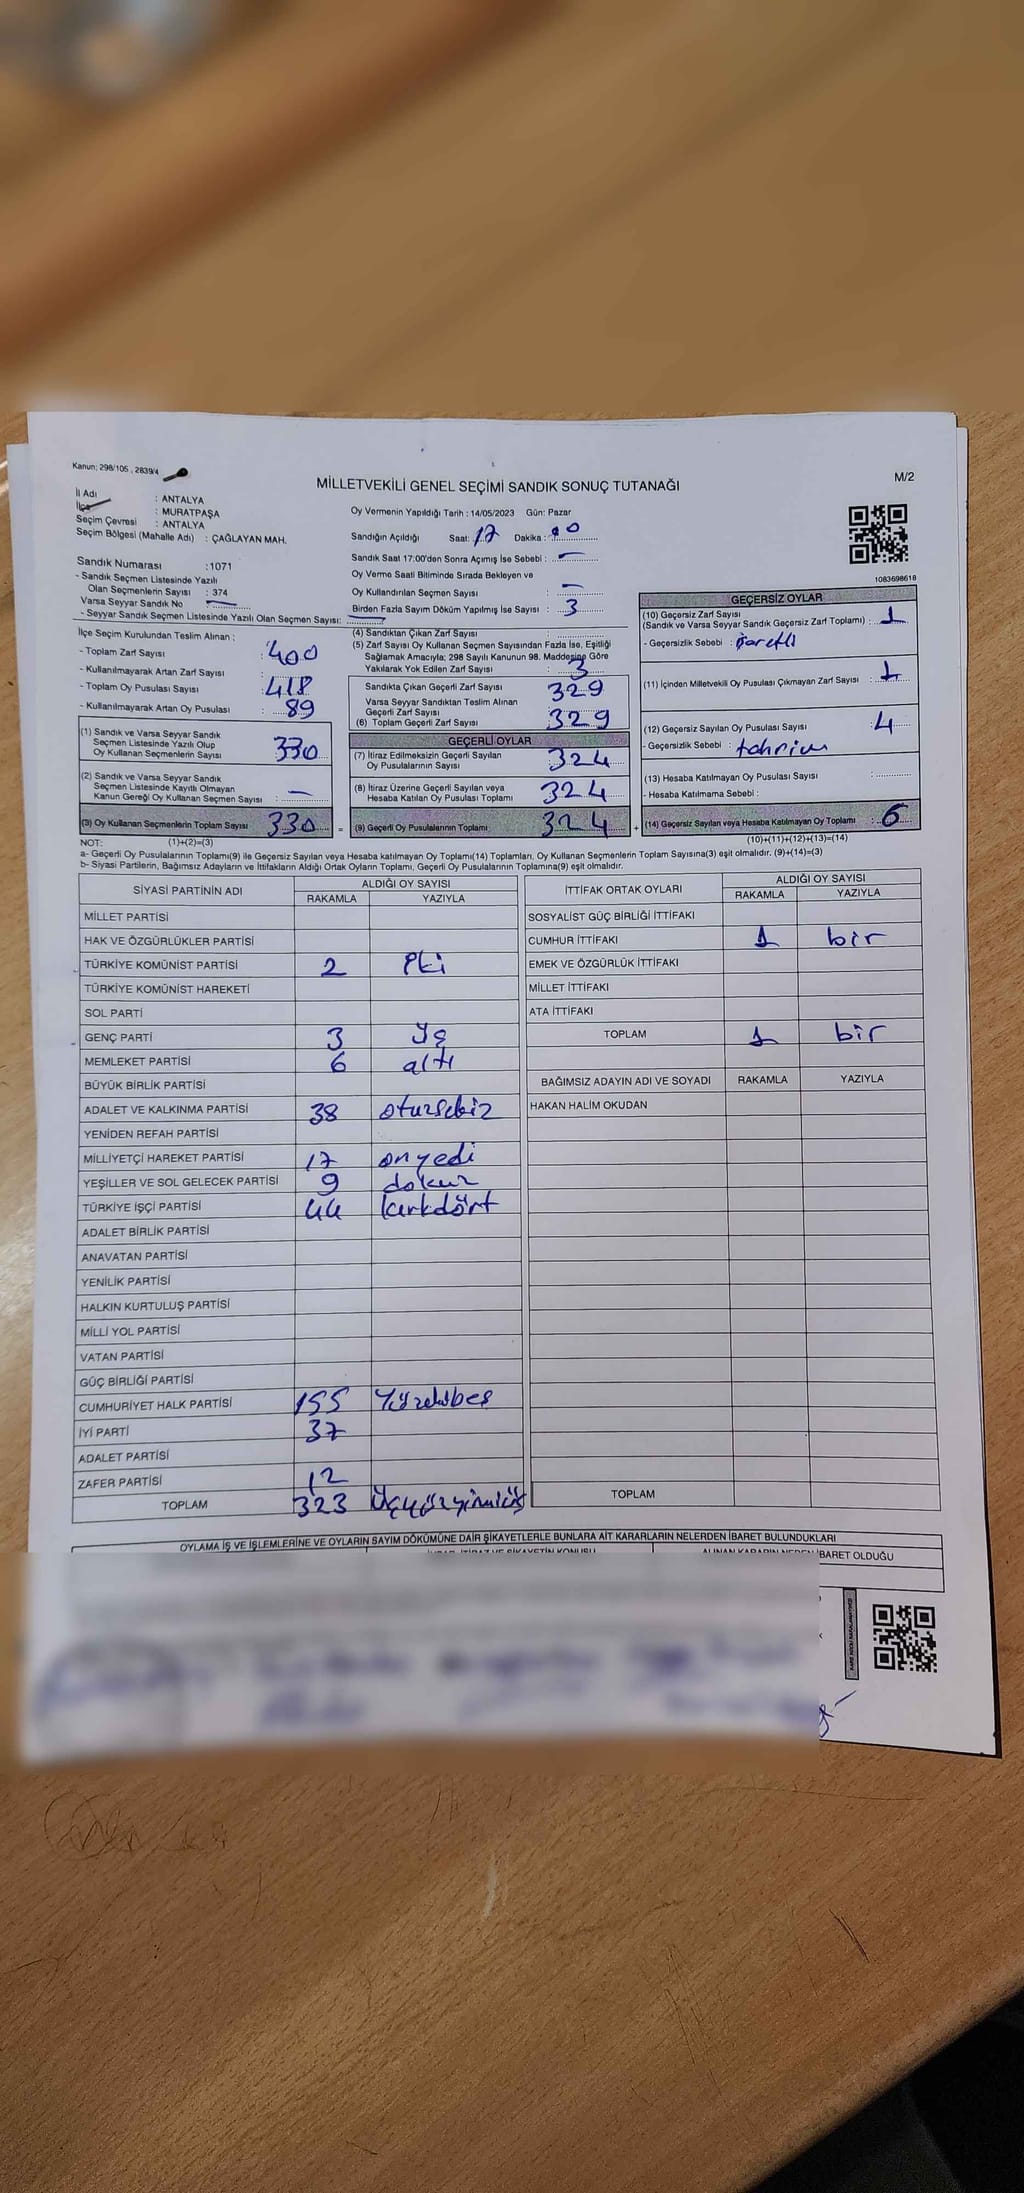 Kanun: 298/105 , 2839/4
M/2
MİLLETVEKİLİ GENEL SEÇİMİ SANDIK SONUÇ TUTANAĞI
İl Adı : ANTALYA
İlçe : MURATPAŞA
Seçim Çevresi : ANTALYA
Seçim Bölgesi (Mahalle Adı) : ÇAĞLAYAN MAH.
Sandık Numarası :1071
- Sandık Seçmen Listesinde Yazılı
Olan Seçmenlerin Sayısı : 374
Varsa Seyyar Sandık No —
- Seyyar Sandık Seçmen Listesinde Yazılı Olan Seçmen Sayısı: —
Oy Vermenin Yapıldığı Tarih : 14/05/2023 Gün: Pazar
Sandığın Açıldığı Saat: 17 Dakika :
Sandık Saat 17:00'den Sonra Açımış İse Sebebi : —
Oy Verme Saati Bitiminde Sırada Bekleyen ve
Oy Kullandırılan Seçmen Sayısı —
Birden Fazla Sayım Döküm Yapılmış İse Sayısı : 3
1083698618
İlçe Seçim Kurulundan Teslim Alınan ;
- Toplam Zarf Sayısı : 400
- Kullanılmayarak Artan Zarf Sayısı :
- Toplam Oy Pusulası Sayısı : 418
- Kullanılmayarak Artan Oy Pusulası : 89
(1) Sandık ve Varsa Seyyar Sandık
Seçmen Listesinde Yazılı Olup
Oy Kullanan Seçmenlerin Sayısı 330
(2) Sandık ve Varsa Seyyar Sandık
Seçmen Listesinde Kayıtlı Olmayan
Kanun Gereği Oy Kullanan Seçmen Sayısı : —
(3) Oy Kullanan Seçmenlerin Toplam Sayısı 330 =
(4) Sandıktan Çıkan Zarf Sayısı :
(5) Zarf Sayısı Oy Kullanan Seçmen Sayısından Fazla İse, Eşitliği
Sağlamak Amacıyla; 298 Sayılı Kanunun 98. Maddesine Göre
Yakılarak Yok Edilen Zarf Sayısı : 3
Sandıkta Çıkan Geçerli Zarf Sayısı 329
Varsa Seyyar Sandıktan Teslim Alınan
Geçerli Zarf Sayısı
(6) Toplam Geçerli Zarf Sayısı 329
GEÇERLİ OYLAR
(7) İtiraz Edilmeksizin Geçerli Sayılan
Oy Pusulalarının Sayısı 324
(8) İtiraz Üzerine Geçerli Sayılan veya
Hesaba Katılan Oy Pusulası Toplamı 324
(9) Geçerli Oy Pusulalarının Toplamı 324 +
GEÇERSİZ OYLAR
(10) Geçersiz Zarf Sayısı
(Sandık ve Varsa Seyyar Sandık Geçersiz Zarf Toplamı) : 1
- Geçersizlik Sebebi : işaretli
(11) İçinden Milletvekili Oy Pusulası Çıkmayan Zarf Sayısı : 1
(12) Geçersiz Sayılan Oy Pusulası Sayısı 4
- Geçersizlik Sebebi :
(13) Hesaba Katılmayan Oy Pusulası Sayısı :
- Hesaba Katılmama Sebebi :
(14) Geçersiz Sayılan veya Hesaba Katılmayan Oy Toplamı : 6
NOT: (1)+(2)=(3) (10)+(11)+(12)+(13)=(14)
a- Geçerli Oy Pusulalarının Toplamı(9) ile Geçersiz Sayılan veya Hesaba katılmayan Oy Toplamı(14) Toplamları, Oy Kullanan Seçmenlerin Toplam Sayısına(3) eşit olmalıdır. (9)+(14)=(3)
b- Siyasi Partilerin, Bağımsız Adayların ve İttifakların Aldığı Ortak Oyların Toplamı, Geçerli Oy Pusulalarının Toplamına(9) eşit olmalıdır.
SİYASİ PARTİNİN ADI ALDIĞI OY SAYISI
RAKAMLA YAZIYLA
MİLLET PARTİSİ
HAK VE ÖZGÜRLÜKLER PARTİSİ
TÜRKİYE KOMÜNİST PARTİSİ 2 iki
TÜRKİYE KOMÜNİST HAREKETİ
SOL PARTİ
GENÇ PARTİ 3 üç
MEMLEKET PARTİSİ 6 altı
BÜYÜK BİRLİK PARTİSİ
ADALET VE KALKINMA PARTİSİ 38 otuzsekiz
YENİDEN REFAH PARTİSİ
MİLLİYETÇİ HAREKET PARTİSİ 17 onyedi
YEŞİLLER VE SOL GELECEK PARTİSİ 9 dokuz
TÜRKİYE İŞÇİ PARTİSİ 44 kırkdört
ADALET BİRLİK PARTİSİ
ANAVATAN PARTİSİ
YENİLİK PARTİSİ
HALKIN KURTULUŞ PARTİSİ
MİLLİ YOL PARTİSİ
VATAN PARTİSİ
GÜÇ BİRLİĞİ PARTİSİ
CUMHURİYET HALK PARTİSİ 155
İYİ PARTİ 37
ADALET PARTİSİ
ZAFER PARTİSİ 12
TOPLAM 323 üçyüzyirmiüç
İTTİFAK ORTAK OYLARI ALDIĞI OY SAYISI
RAKAMLA YAZIYLA
SOSYALİST GÜÇ BİRLİĞİ İTTİFAKI
CUMHUR İTTİFAKI 1 bir
EMEK VE ÖZGÜRLÜK İTTİFAKI
MİLLET İTTİFAKI
ATA İTTİFAKI
TOPLAM 1 bir
BAĞIMSIZ ADAYIN ADI VE SOYADI RAKAMLA YAZIYLA
HAKAN HALİM OKUDAN
TOPLAM
OYLAMA İŞ VE İŞLEMLERİNE VE OYLARIN SAYIM DÖKÜMÜNE DAİR ŞİKAYETLERLE BUNLARA AİT KARARLARIN NELERDEN İBARET BULUNDUKLARI
İBARET OLDUĞU